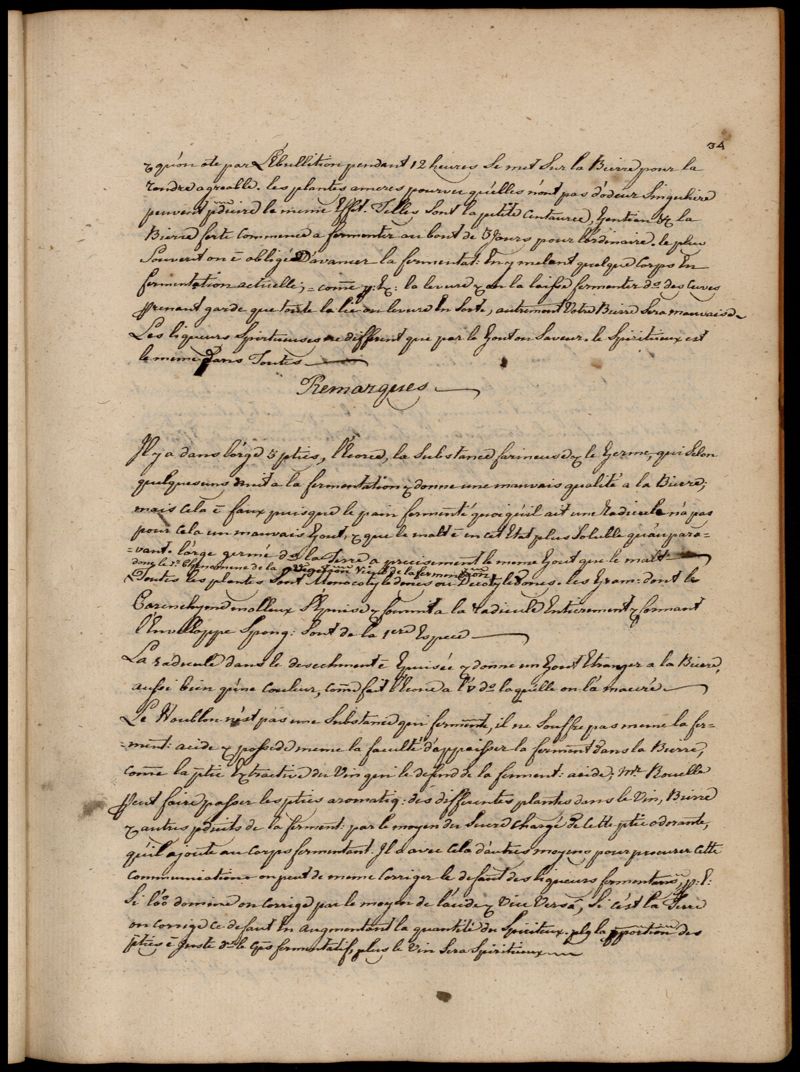 34
& qu'on ote par L'Ebullition pendant 12 heures Se met Sur la Bierre pour la
rendre agreable. les plantes ameres pourvu qu'elles n'ont pas d'odeur Singuliere
peuvent pduire le meme Effet. Telles Sont la petite Centaurée, Gentien &c la
Bierre forte commence a fermenter au bout de 3 Jours pour l'ordinaire. le plus
Souvent on ē obligé D'avancer la fermentat: En y melant quelque Corps En
fermentation actuelle; = come p: Ex: la levure & on la laisse fermenter ds des Cuves
prenant garde que toute la lie ou levure En Sorte, autrement Votre Bierre Sera mauvaise
Les liqueurs Spiritueuses ne different que par le Gout ou Saveur. le Spiritueux est
le meme Dans Toutes
Remarques
Il y a dans l'orge 3 pties, l'Ecorce, la Substance farineuse & le Germe, qui Selon
quelques uns nuit a la fermentation & donne une mauvais qualité a la Bierre;
mais Cela ē faux puisque le pain fermenté quoiqu'il ait une Radicule n'a pas
pour cela un mauvais Gout, & que le malt ē en cet Etat plus Soluble qu'aupara-
-vant. l'orge germé ds la Terre a precisement le meme Gout que le malt
donc le 1er Phenomene de la Vegetion Vient de la fermention
Toutes les plantes Sont Monocotyledones ou Dicotyledones. les Gram: dont le
Parenchyme moelleux S'Epuise & fournit a la radicule Entierement & formant
l'Enveloppe Spong: Sont de la 1ere Espece
La radicule dans le desechment ē Epuisée & donne un Gout Etranger a la Bierre,
aussi bien qu'une Couleur, come fait l'Ecorce a l'v ds laquelle on l'a macéré
Le Houblon n'est pas une Substance qui fermente, il ne Souffre pas meme la fer-
-ment: acide & possede meme la faculté d'appaisser la ferment Dans la Bierre,
come la ptie Extractive du Vin qui le defend de la ferment: acide; Mr Rouelle
Veut faire passer les pties aromatiq: des differentes plantes dans le Vin, Bierre
& autres pduits de la ferment: par le moyen du Sucre Chargé de Cette ptie odorante,
qu'il ajoute au Corps fermentant. Il a avec Cela d'autres moyens pour procurer Cette
Communication on peut de meme Corriger le defaut des liqueurs fermentans, p: E:
Si l'o domine on Corrige par le moyen de l'acide & Vice Versa, Si c'est la Terre
on Corrige Ce defaut En augmentant la quantité du Spiriteux. plus la pportion des
pties ē Juste ds le Cps fermentatif, plus le Vin Sera Spiritueux